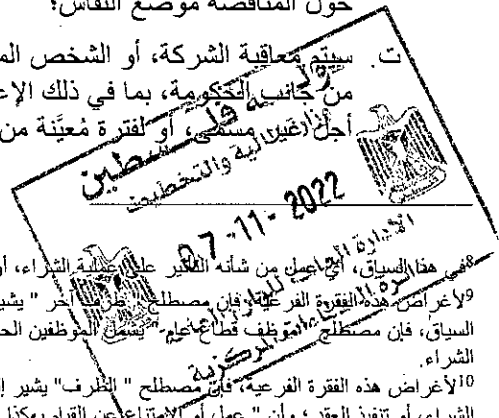 حول المناقصة موضع النقاش؛
ت. سيتم معاقبة الشركة، أو الشخص
من جانب الحكومة، بما في ذلك
أجل غير مسمى، أو لفترة مُعيَّنة من
دولة فلسطين
وزارة المالية والتخطيط
07 -11- 2022
الإدارة العامة للوازم العامة
دائرة العطاءات المركزية
8في هذا السياق، أي عمل من شأنه التأثير على عملية الشراء، أو
9لأغراض هذه الفقرة الفرعية، فإن مصطلح " طرف آخر " يشير
السياق، فإن مصطلح " موظف قطاع عام " يشمل الموظفين
الشراء.
10لأغراض هذه الفقرة الفرعية، فإن مصطلح " الطرف" يشير
الشراء، أو تنفيذ العقد؛ وأن " عمل أو الامتناع عن القيام بهكذا